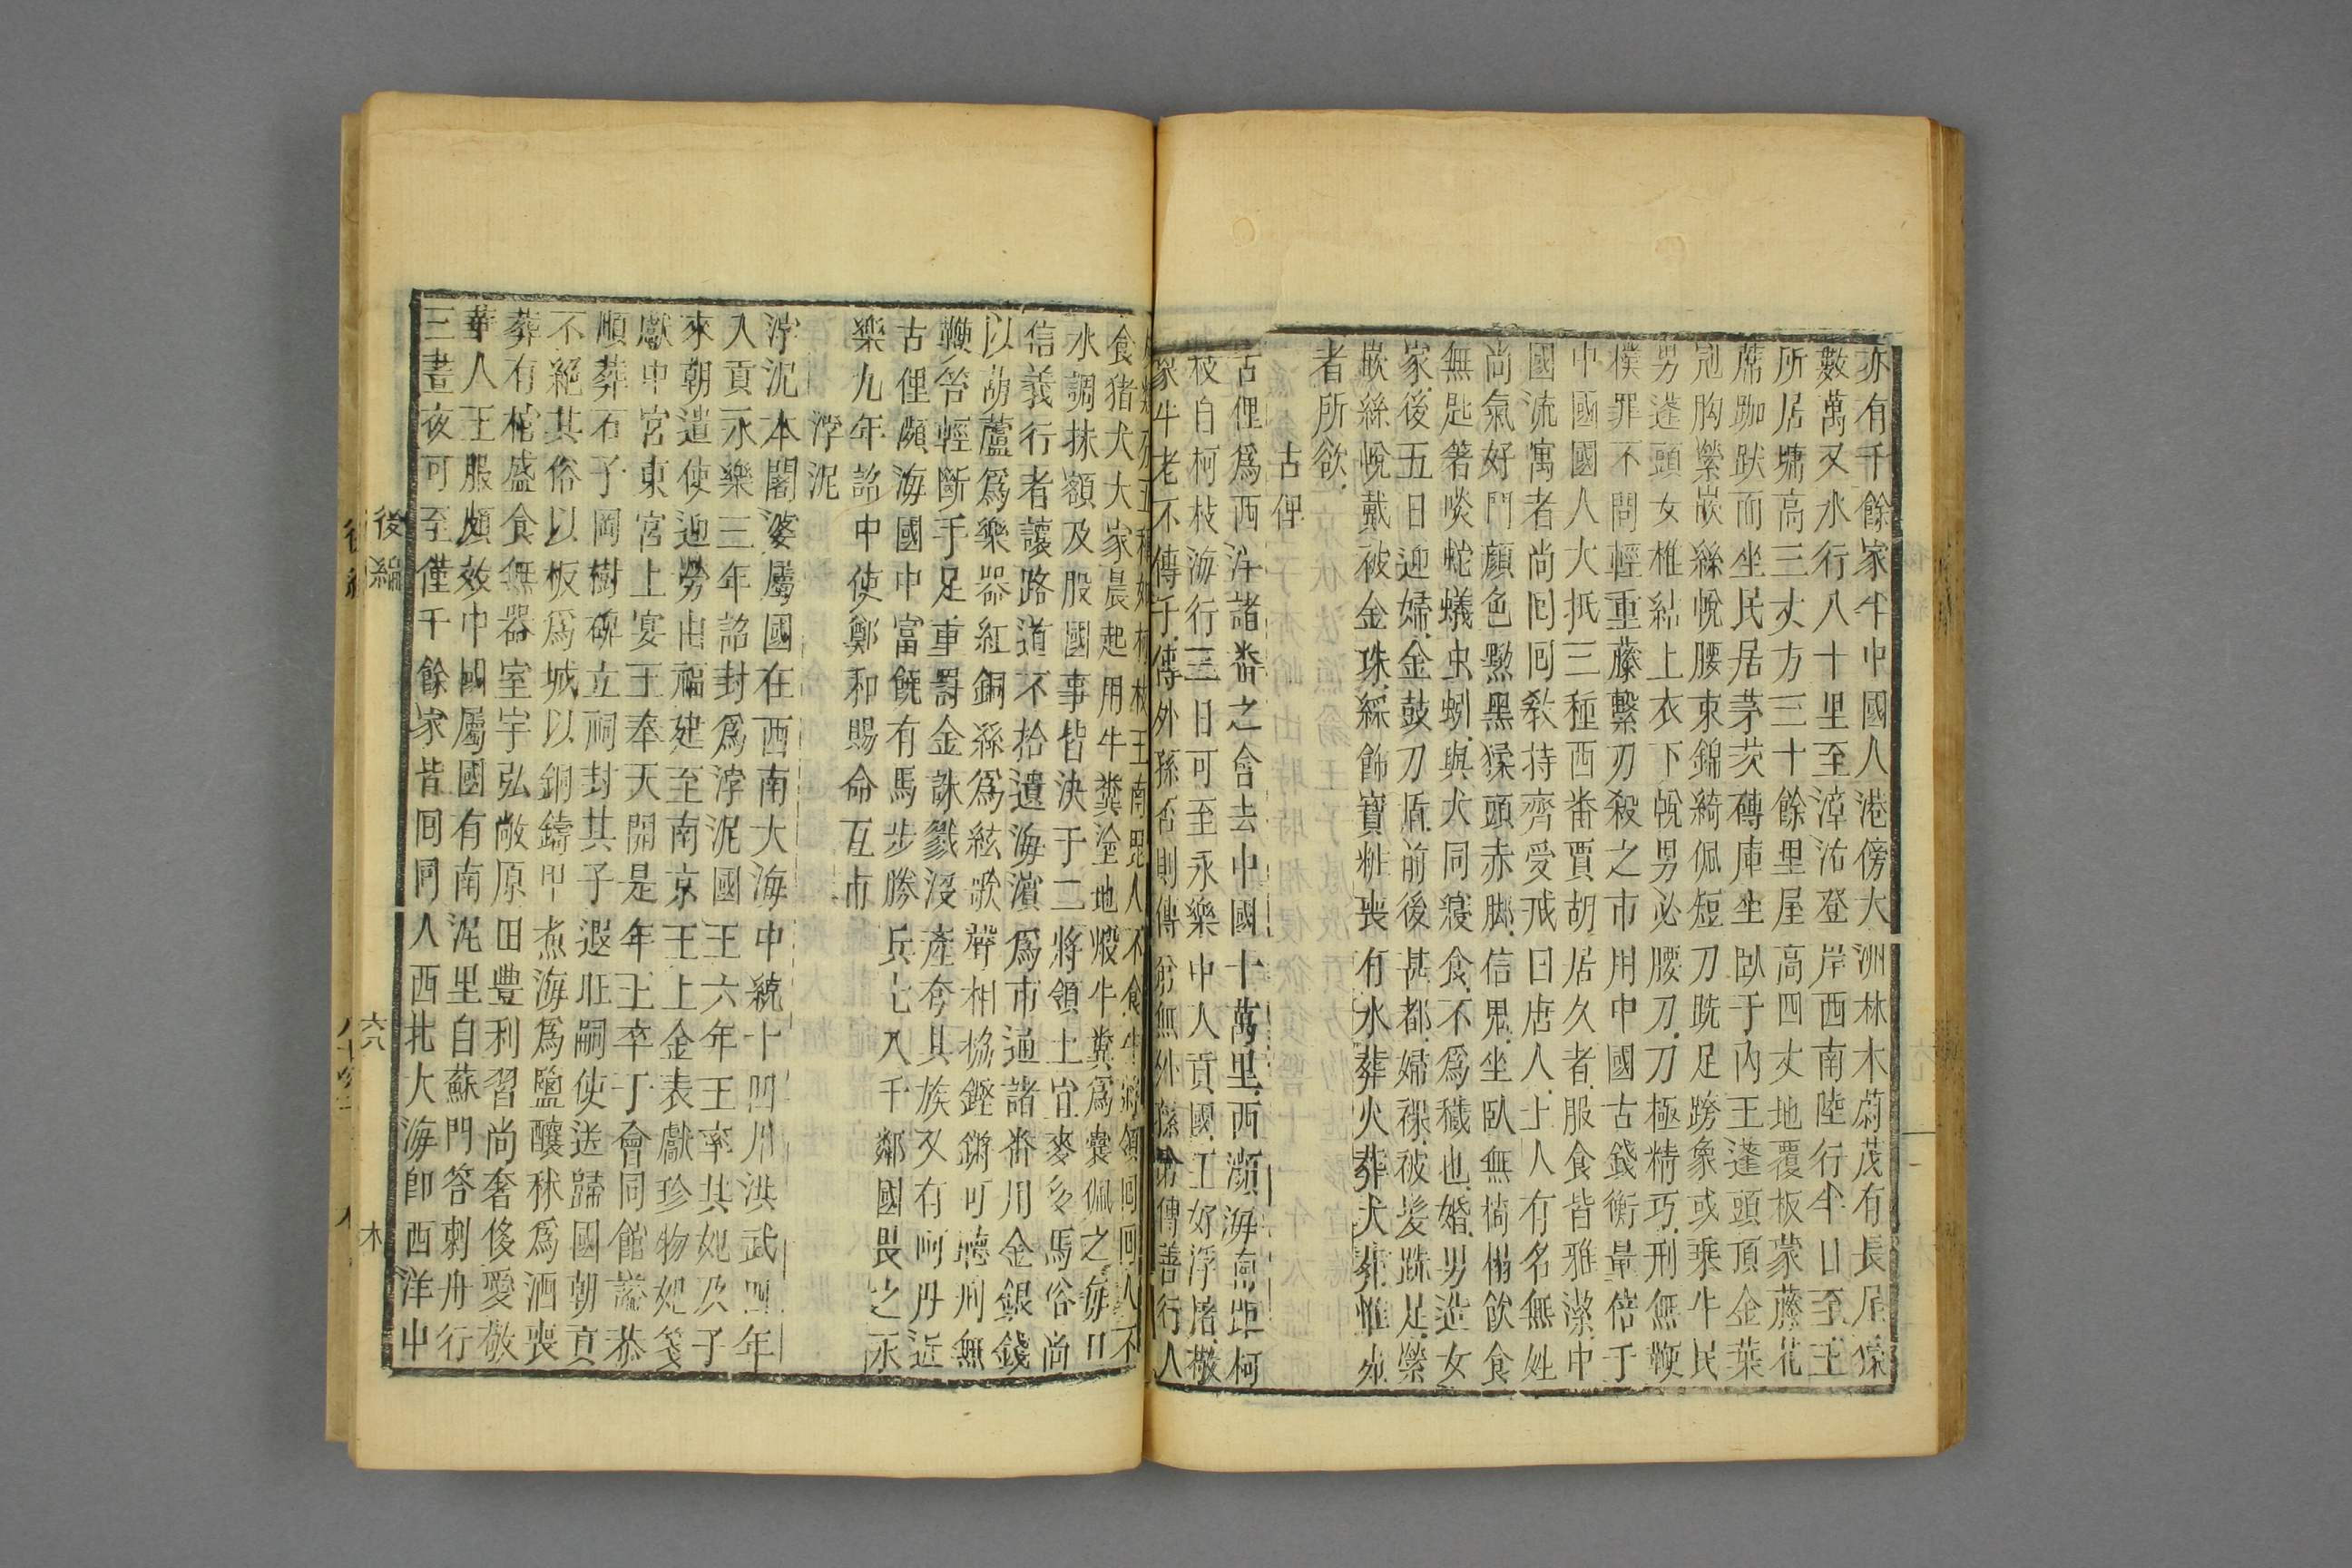 亦有千餘家牛中國人港傍大洲林木蔚茂有長尾猱
數萬又水行八十里至漳沽登岸西南陸行半日至王
所居墉高三丈方三十餘里屋高四丈地覆板蒙藤花
蓆跏趺而坐民居茅茨磚庫坐臥于內王蓬頭頂金葉
冠胸縈嵌絲帨腰束錦綺佩短刀跣足跨象或乘牛民
男蓬頭女椎結上衣下帨男必腰刀刀極精巧刑無鞭
樸罪不問輕重藤繫刃殺之市用中國古錢衡量倍于
中國國人大抵三種西番賈胡居久者服食皆雅潔中
國流寓者尚回回教持齊受戒曰唐人土人有名無姓
尚氣好鬥顏色黝黑猱頭赤脚信鬼坐臥無椅榻飲食
無匙箸啖蛇蟻虫蚓與犬同寢食不為穢也婚男造女
家後五日迎婦金鼓刀盾前後甚都婦祼被髮跣足縈
嵌絲帨戴被金珠綵飾寶粧喪有水葬火葬犬葬惟
者所欲
古俚
古俚為西洋諸番之會去中國十萬里西瀕海南距柯
枝自柯枝海行三日可至永樂中入貢國王好浮屠敬
象牛老不傳子傳外孫否則傳弟無外孫弟傳善行人
王南毘人不食牛將領回回人不
食猪犬大家晨起用牛糞塗地煅牛糞為囊佩之每日
水調抹額及股國事皆決于二將領土宜麥多馬俗尚
信義行者讓路道不拾遺海濱為市通諸番用金銀錢
以葫蘆為樂器紅銅絲為絃歌聲相協鏗鏘可聽刑無
鞭笞輕斷手足重罰金誅戮沒產夷其族又有阿丹近
古俚瀕海國中富饒有馬步勝兵七八千鄰國畏之永
樂九年詔中使鄭和賜命互市
浡泥
浡泥本闍婆屬國在西南大海中統十四州洪武四年
入貢永樂三年詔封為浡泥國王六年王率其妃及子
來朝遣使迎勞由福建至南京王上金表獻珍物妃箋
獻中宮東宮上宴王奉天開是年王卒于會同館謚恭
順葬石子岡樹碑立祠封其子遐旺嗣使送歸國朝貢
不絕其俗以板為城以銅鑄甲煮海為鹽釀秫為酒喪
葬有棺盛食無器室宇弘敞原田豐利習尚奢侈愛敬
華人王服頗效中國屬國有南泥里自蘇門答剌舟行
三晝夜可至僅千餘家皆回回人西北大海即西洋中
後編
木